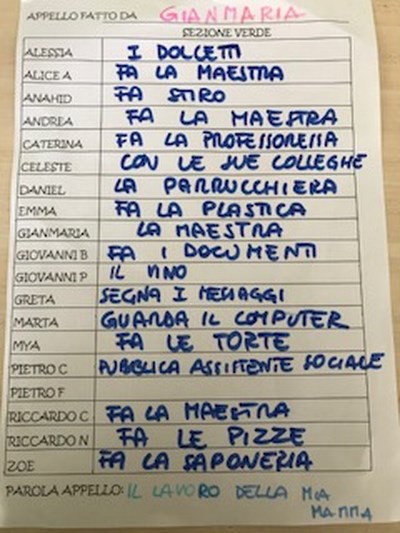 APPELLO FATTO DA GIANMARIA
SEZIONE VERDE
ALESSIA I DOLCETTI
ALICE A FA LA MAESTRA
ANAHID FA STIRO
ANDREA FA LA MAESTRA
CATERINA FA LA PROFESSORESSA
CELESTE CON LE SUE COLLEGHE
DANIEL LA PARRUCCHIERA
EMMA FA LA PLASTICA
GIANMARIA LA MAESTRA
GIOVANNI B FA I DOCUMENTI
GIOVANNI P IL VINO
GRETA SEGNA I MESSAGGI
MARTA GUARDA IL COMPUTER
MYA FA LE TORTE
PIETRO C PUBBLICA ASSISTENTE SOCIALE
PIETRO F
RICCARDO C FA LA MAESTRA
RICCARDO N FA LE PIZZE
ZOE FA LA SAPONERIA
PAROLA APPELLO: IL LAVORO DELLA MIA
MAMMA